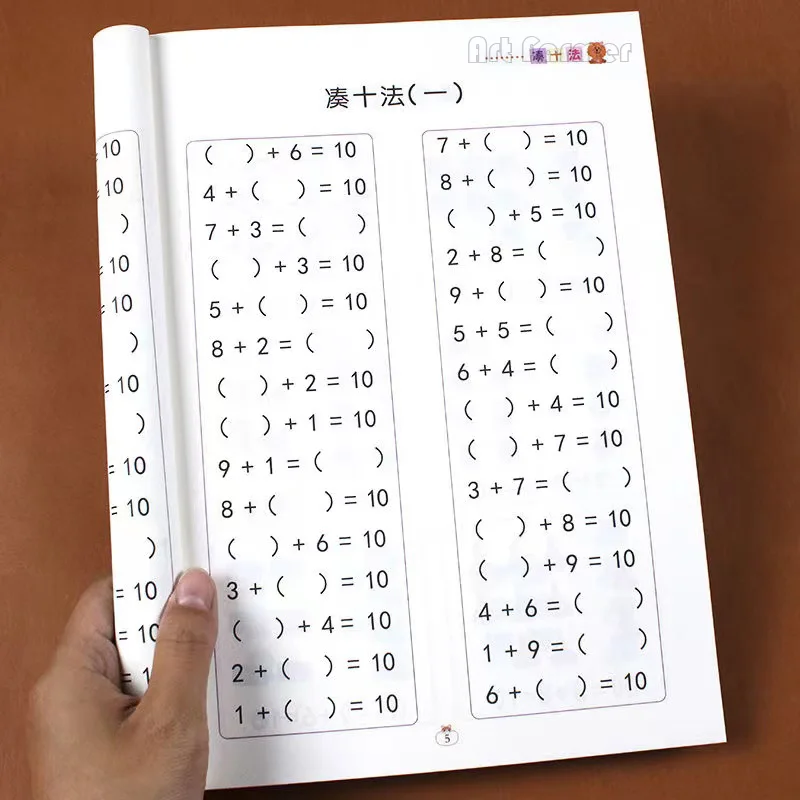 Art Farmer
凑十法
凑十法(一)
= 10
= 10
)
= 10
= 10
)
= 10
)
= 10
= 10
)
= 10
= 10
= 1
( ) + 6 = 10
4 + ( ) = 10
7 + 3 = ( )
( ) + 3 = 10
5 + ( ) = 10
8 + 2 = ( )
( ) + 2 = 10
( ) + 1 = 10
9 + 1 = ( )
8 + ( ) = 10
( ) + 6 = 10
3 + ( ) = 10
( ) + 4 = 10
2 + ( ) = 10
1 + ( ) = 10
7 + ( ) = 10
8 + ( ) = 10
( ) + 5 = 10
2 + 8 = ( )
9 + ( ) = 10
5 + 5 = ( )
6 + 4 = ( )
( ) + 4 = 10
( ) + 7 = 10
3 + 7 = ( )
( ) + 8 = 10
( ) + 9 = 10
4 + 6 = ( )
1 + 9 = ( )
6 + ( ) = 10
5